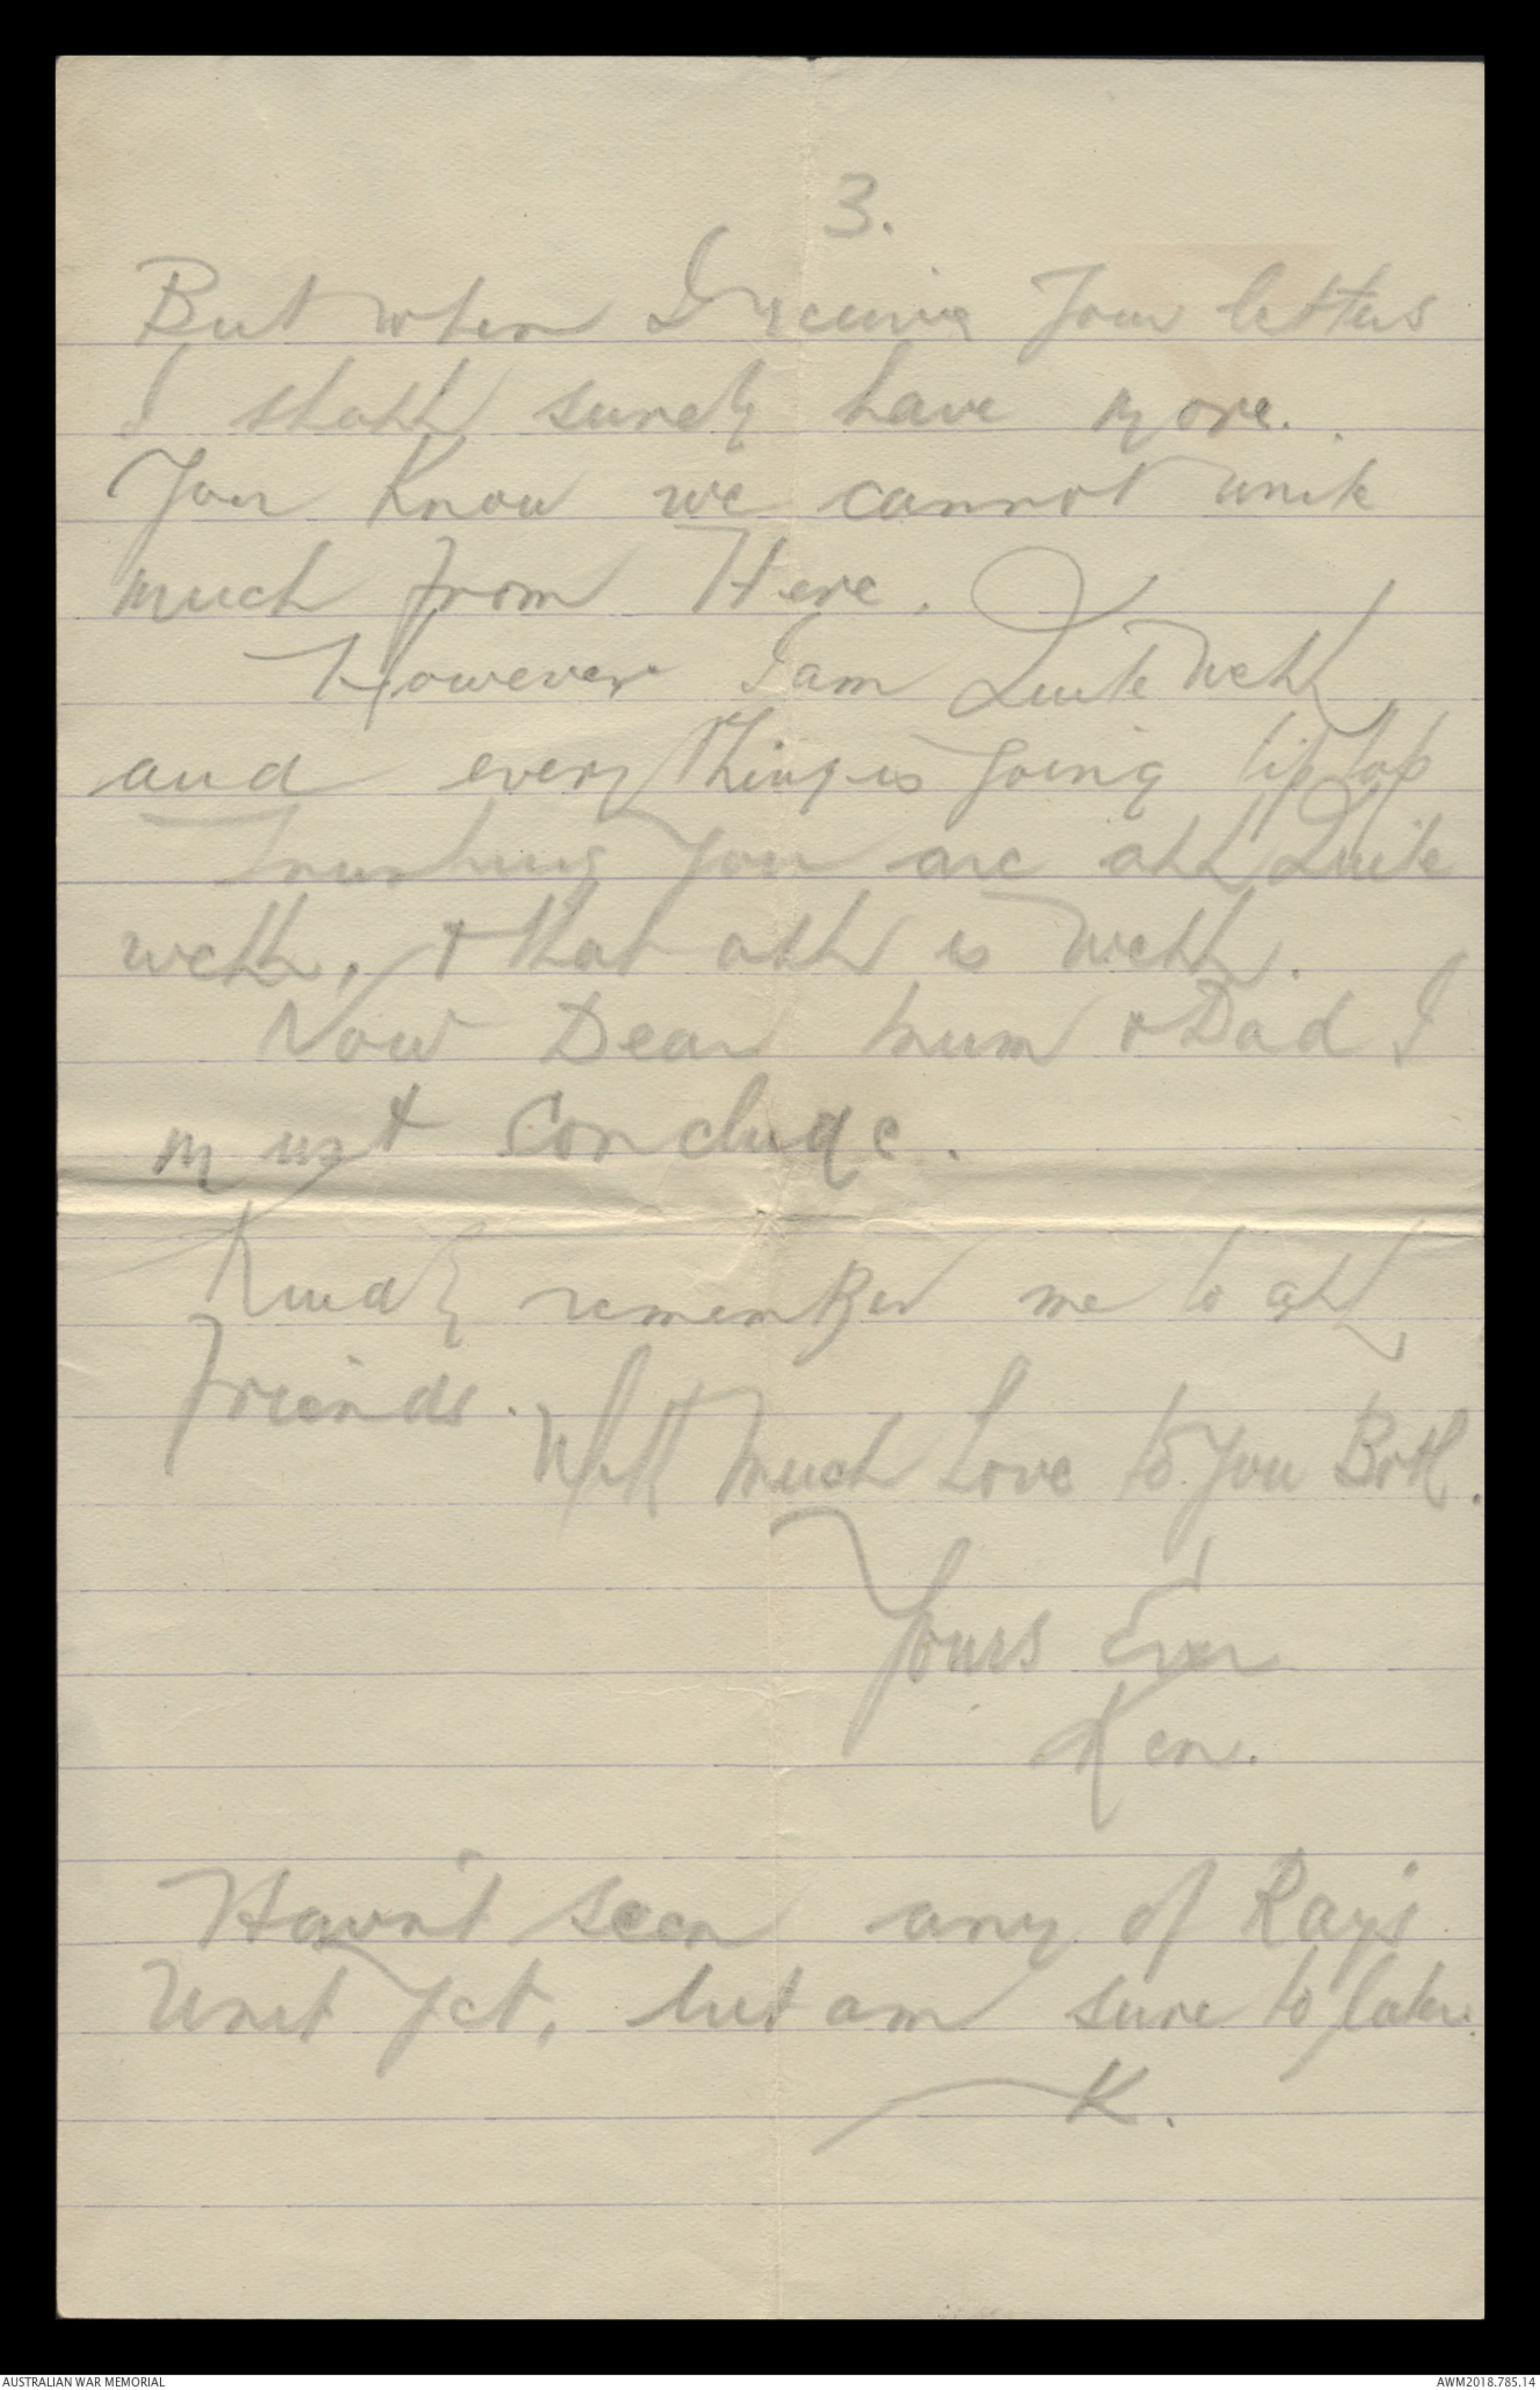 3.
But when I receive your letters
I shall surely have more.
You know we cannot write
much from Here.
However I am Quite Well
and every thing is going tip top
Trusting you are all Quite
well, & that all is well.
Now Dear Mum & Dad I
must conclude.
Kindly remember me to all
Friends.
With Much Love to you Both.
Yours Ever
Ken.
Havn't seen any of Ray's
Unit yet, but am sure to later.
K.
AUSTRALIAN WAR MEMORIAL
AWM2018.785.14